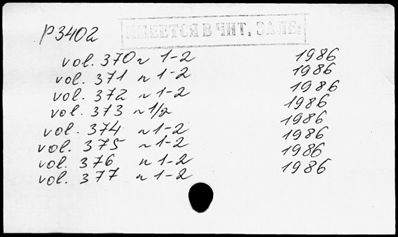 P3402 ИМЕЕТСЯ В ЧИТ. ЗАЛЕ
vol. 370 n 1-2 1986
vol. 371 n 1-2 1986
vol. 372 n 1-2 1986
vol. 373 n 1/2 1986
vol. 374 n 1-2 1986
vol. 375 n 1-2 1986
vol. 376 n 1-2 1986
vol. 377 n 1-2 1986